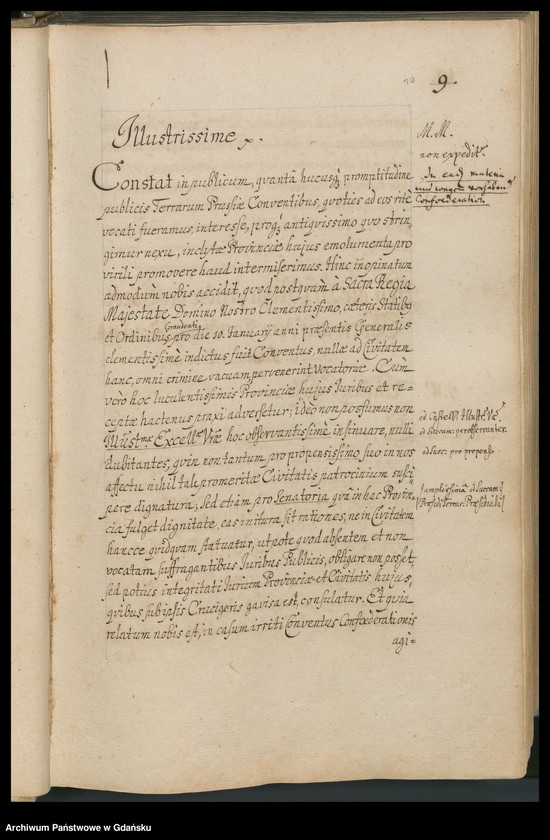 9.
Illustrissime
Constat in publicum, qvantâ hucusq; promptitudine
publicis Terrarum Prussiæ Conventibus, qvoties ad eos ritè
vocati fueramus, interesse, prog; antiqvissimo qvo strin-
gimur nexu, inclytæ Provinciæ hujus emolumenta pro
virili promovere haud intermiserimus. Hinc inopinatum
admodùm nobis accidit, qvod postqvam à Sacra Regia
Majestate Domino Nostro Clementissimo, cæteris Statibq
et Ordinibus pro die 10. Januarij anni præsentis Generalis
Graudenti
clementissimè indictus fuit Conventus, nullæ ad Civitatem
hanc, omni crimine vacuam pervenerint Vocatoriæ. Cùm
verò hoc luculentissimis Provinciæ hujus Juribus et re-
ceptæ hactenus praxi adversetur; ideò non possumus non
Illustmæ Excellæ Vræ hoc observantissimè insinuare, nulli
dubitantes, qvin non tantùm pro propensissimo suo in nos
affectu nihil tale promeritæ Civitatis patrocinium susci
pere dignatura, sed etiàm pro Senatoria qvâ in hac Provin-
cia fulget dignitate, eas initura sit rationes, ne in Civitatem
hancce qvidqvam statuatur, utpote qvod absentem et non
vocatam suffragantibus Juribus Publicis, obligare non posset,
sed potius integritati Jurium Provinciæ et Civitatis hujus,
qvibus sub ipsis Crucigeris gavisa est, consulatur. Et qvia
relatum nobis est, in casum irriti Conventus Confœderationis
agi-
M. M.
non expedit.
In ead. materia
Confoederation
ad Castell. Illust. Væ.
adfect: pro propenso